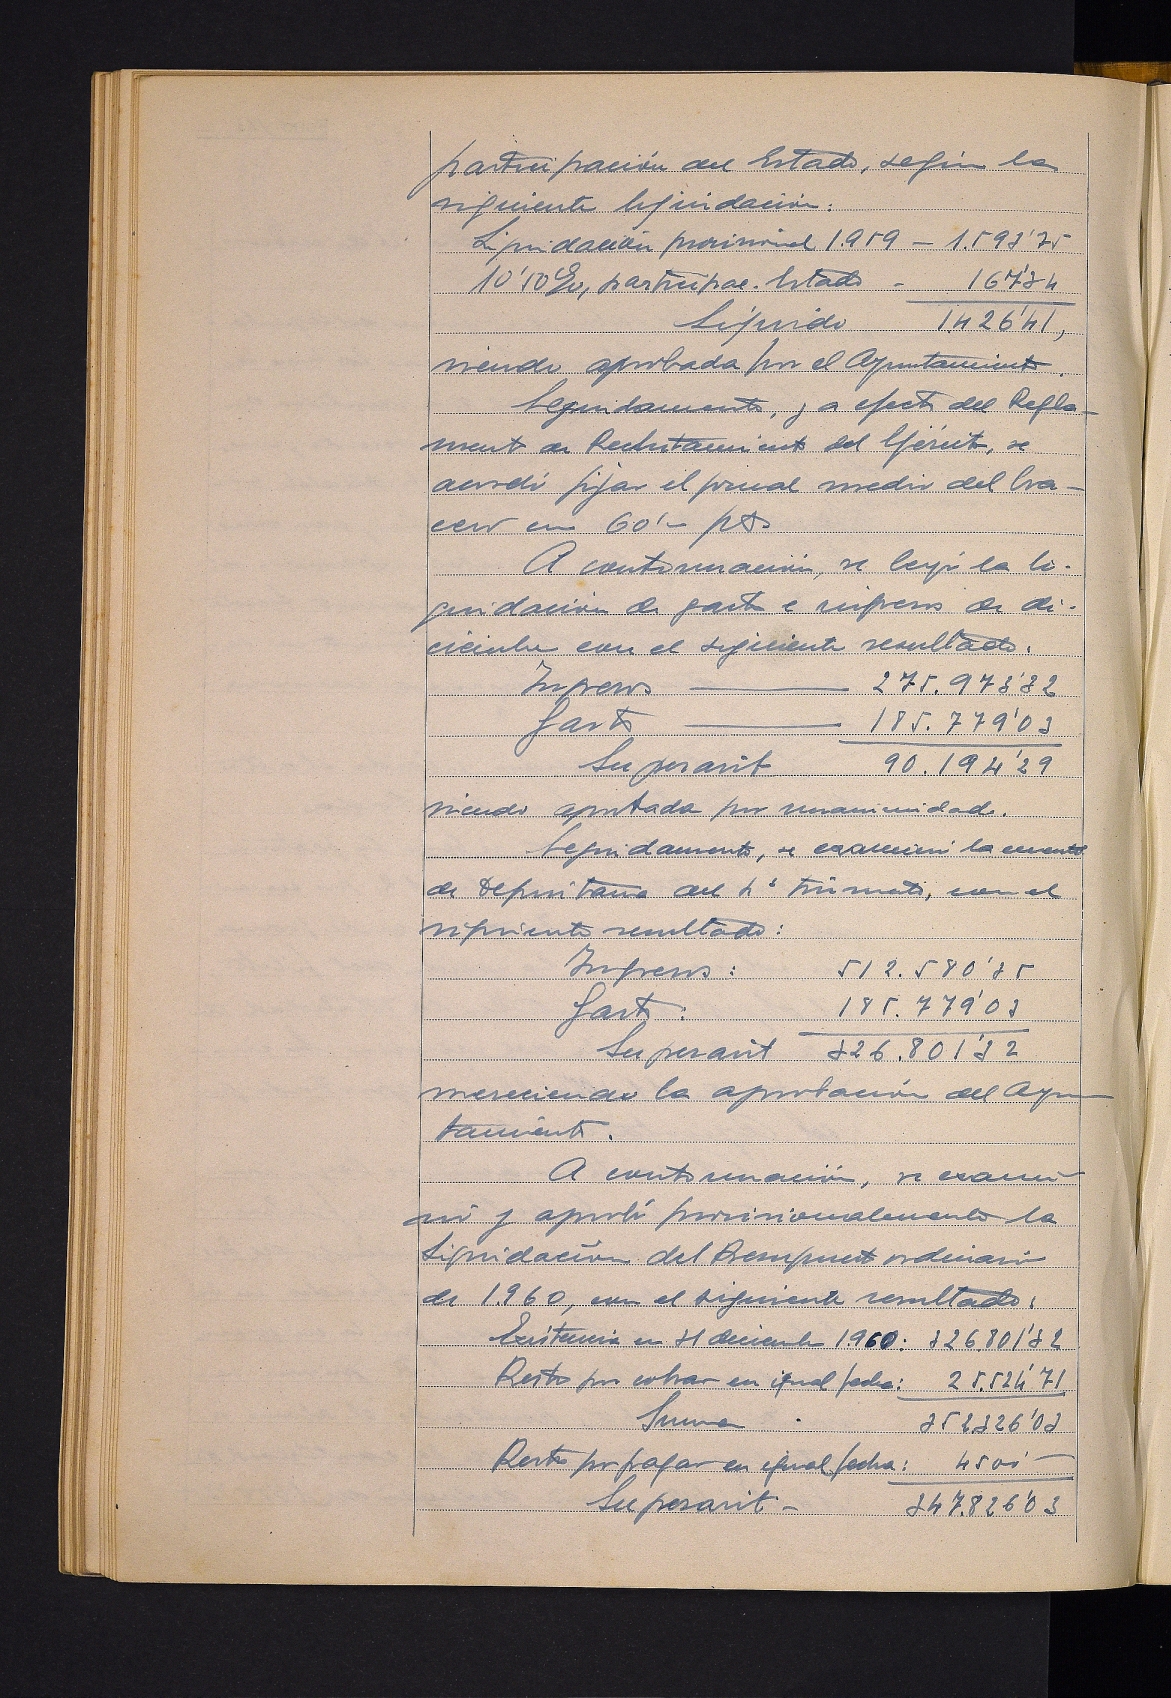 participación del Estado, según la
siguiente liquidación:
Liquidación provisional 1.959 – 1.593'75
10'50%, participac. Estado - 167'34
Líquido 1.426'41,
siendo aprobada por el Ayuntamiento.
Seguidamente, y a efecto del Regla-
mento de Reclutamiento del Ejército, se
acordó fijar el jornal medio del bra-
cero en 60'- pts
A continuación, se leyó la li-
quidación de gasto e ingresos de di-
ciembre con el siguiente resultado:
Ingresos — 275.973'32
Gasto — 185.779'03
Superavit 90.194'29
siendo aprobada por unanimidad.
Seguidamente, se examinó la cuenta
de Depositaria del 4º trimestre, con el
siguiente resultado:
Ingresos: 512.580'35
Gasto: 185.779'03
Superavit 326.801'32
mereciendo la aprobación del Ayun
tamiento.
A continuación, se exami-
nó y aprobó provisionalmente la
Liquidación del Presupuesto ordinario
de 1.960, con el siguiente resultado:
Existencia en 31 diciembre 1.960: 326.801'32
Resto por cobrar en igual fecha: 25.524'71
Suma 352.326'03
Resto por pagar en igual fecha: 4.500'—
Superavit – 347.826'03